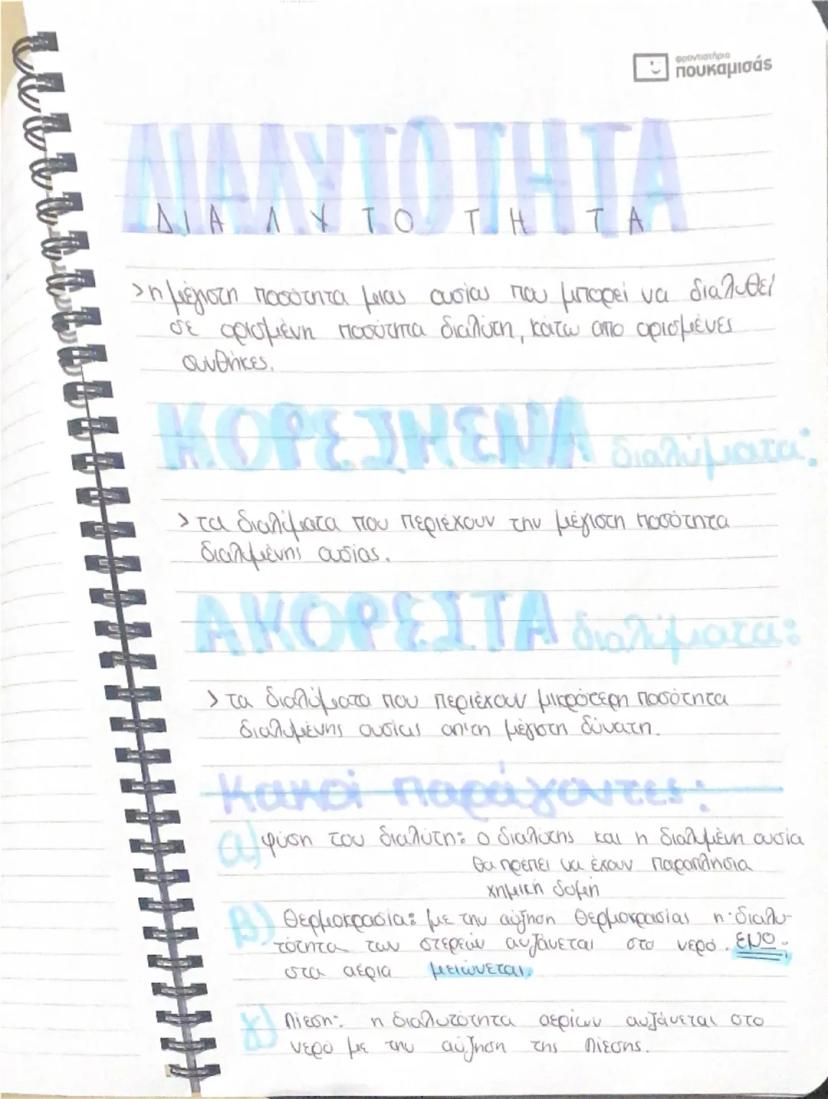 φροντιστήρια
πουκαμισάς
ΔΙΑΛΥΤΟΤΗΤΑ
ΔΙΑΛΥΤΟΤΗΤΑ
>η μέγιστη ποσότητα μιας ουσίας που μπορεί να διαλυθεί
σε ορισμένη ποσότητα διαλύτη, κάτω από ορισμένες
συνθήκες.
ΚΟΡΕΣΜΕΝΑ διαλύματα:
>τα διαλύματα που περιέχουν την μέγιστη ποσότητα
διαλυμένης ουσίας.
ΑΚΟΡΕΣΤΑ διαλύματα:
>τα διαλύματα που περιέχουν μικρότερη ποσότητα
διαλυμένης ουσίας απ'τη μέγιστη δύνατη.
παράγοντες:
α) φύση του διαλύτη: ο διαλύτης και η διαλυμένη ουσία
θα πρέπει να έχουν παραπλήσια
χημική δομή
β) Θερμοκρασία: με την αύξηση θερμοκρασίας η διαλυ-
τότητα των στερεών αυξάνεται στο νερό. ΕΝΩ
στα αέρια μειώνεται.
γ) Πίεση: η διαλυτότητα αερίων αυξάνεται στο
νερό με την αύξηση της πίεσης.